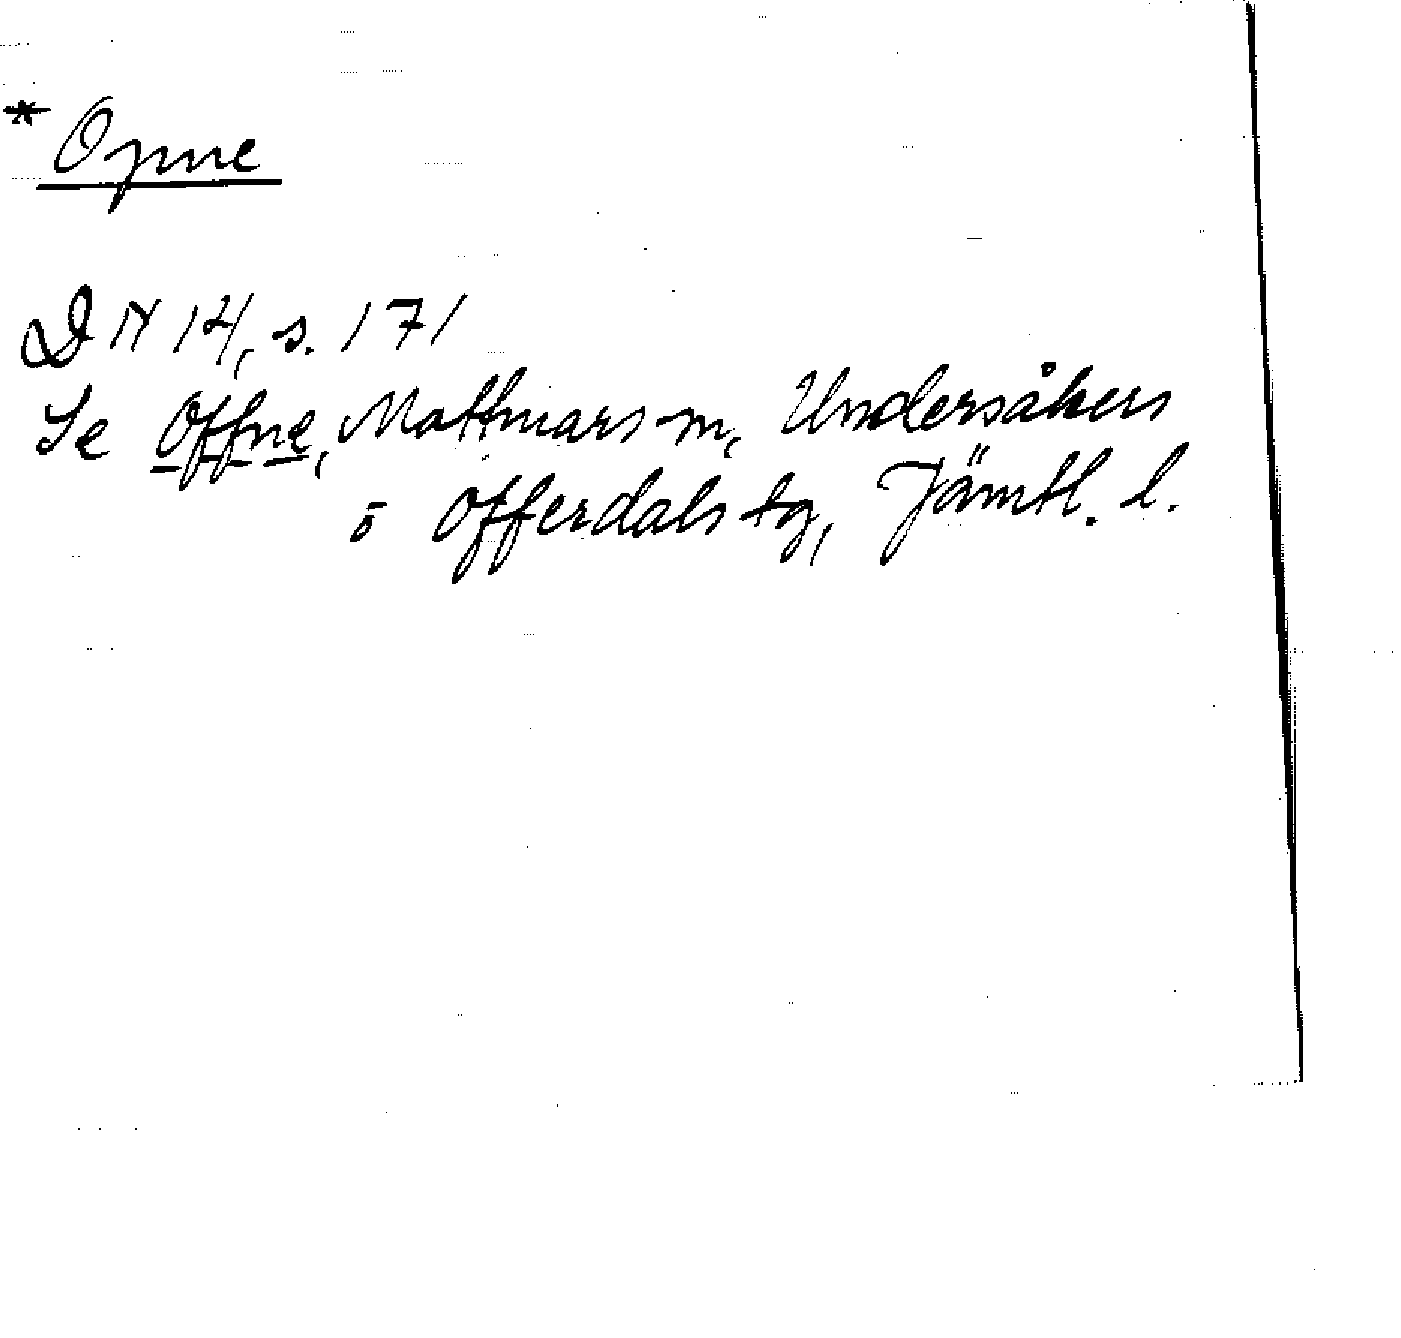 * Opne
DN 14, s. 171
Se Offne, Mattmars sn, Undersåkers
o Offerdals tg, Jämtl. l.